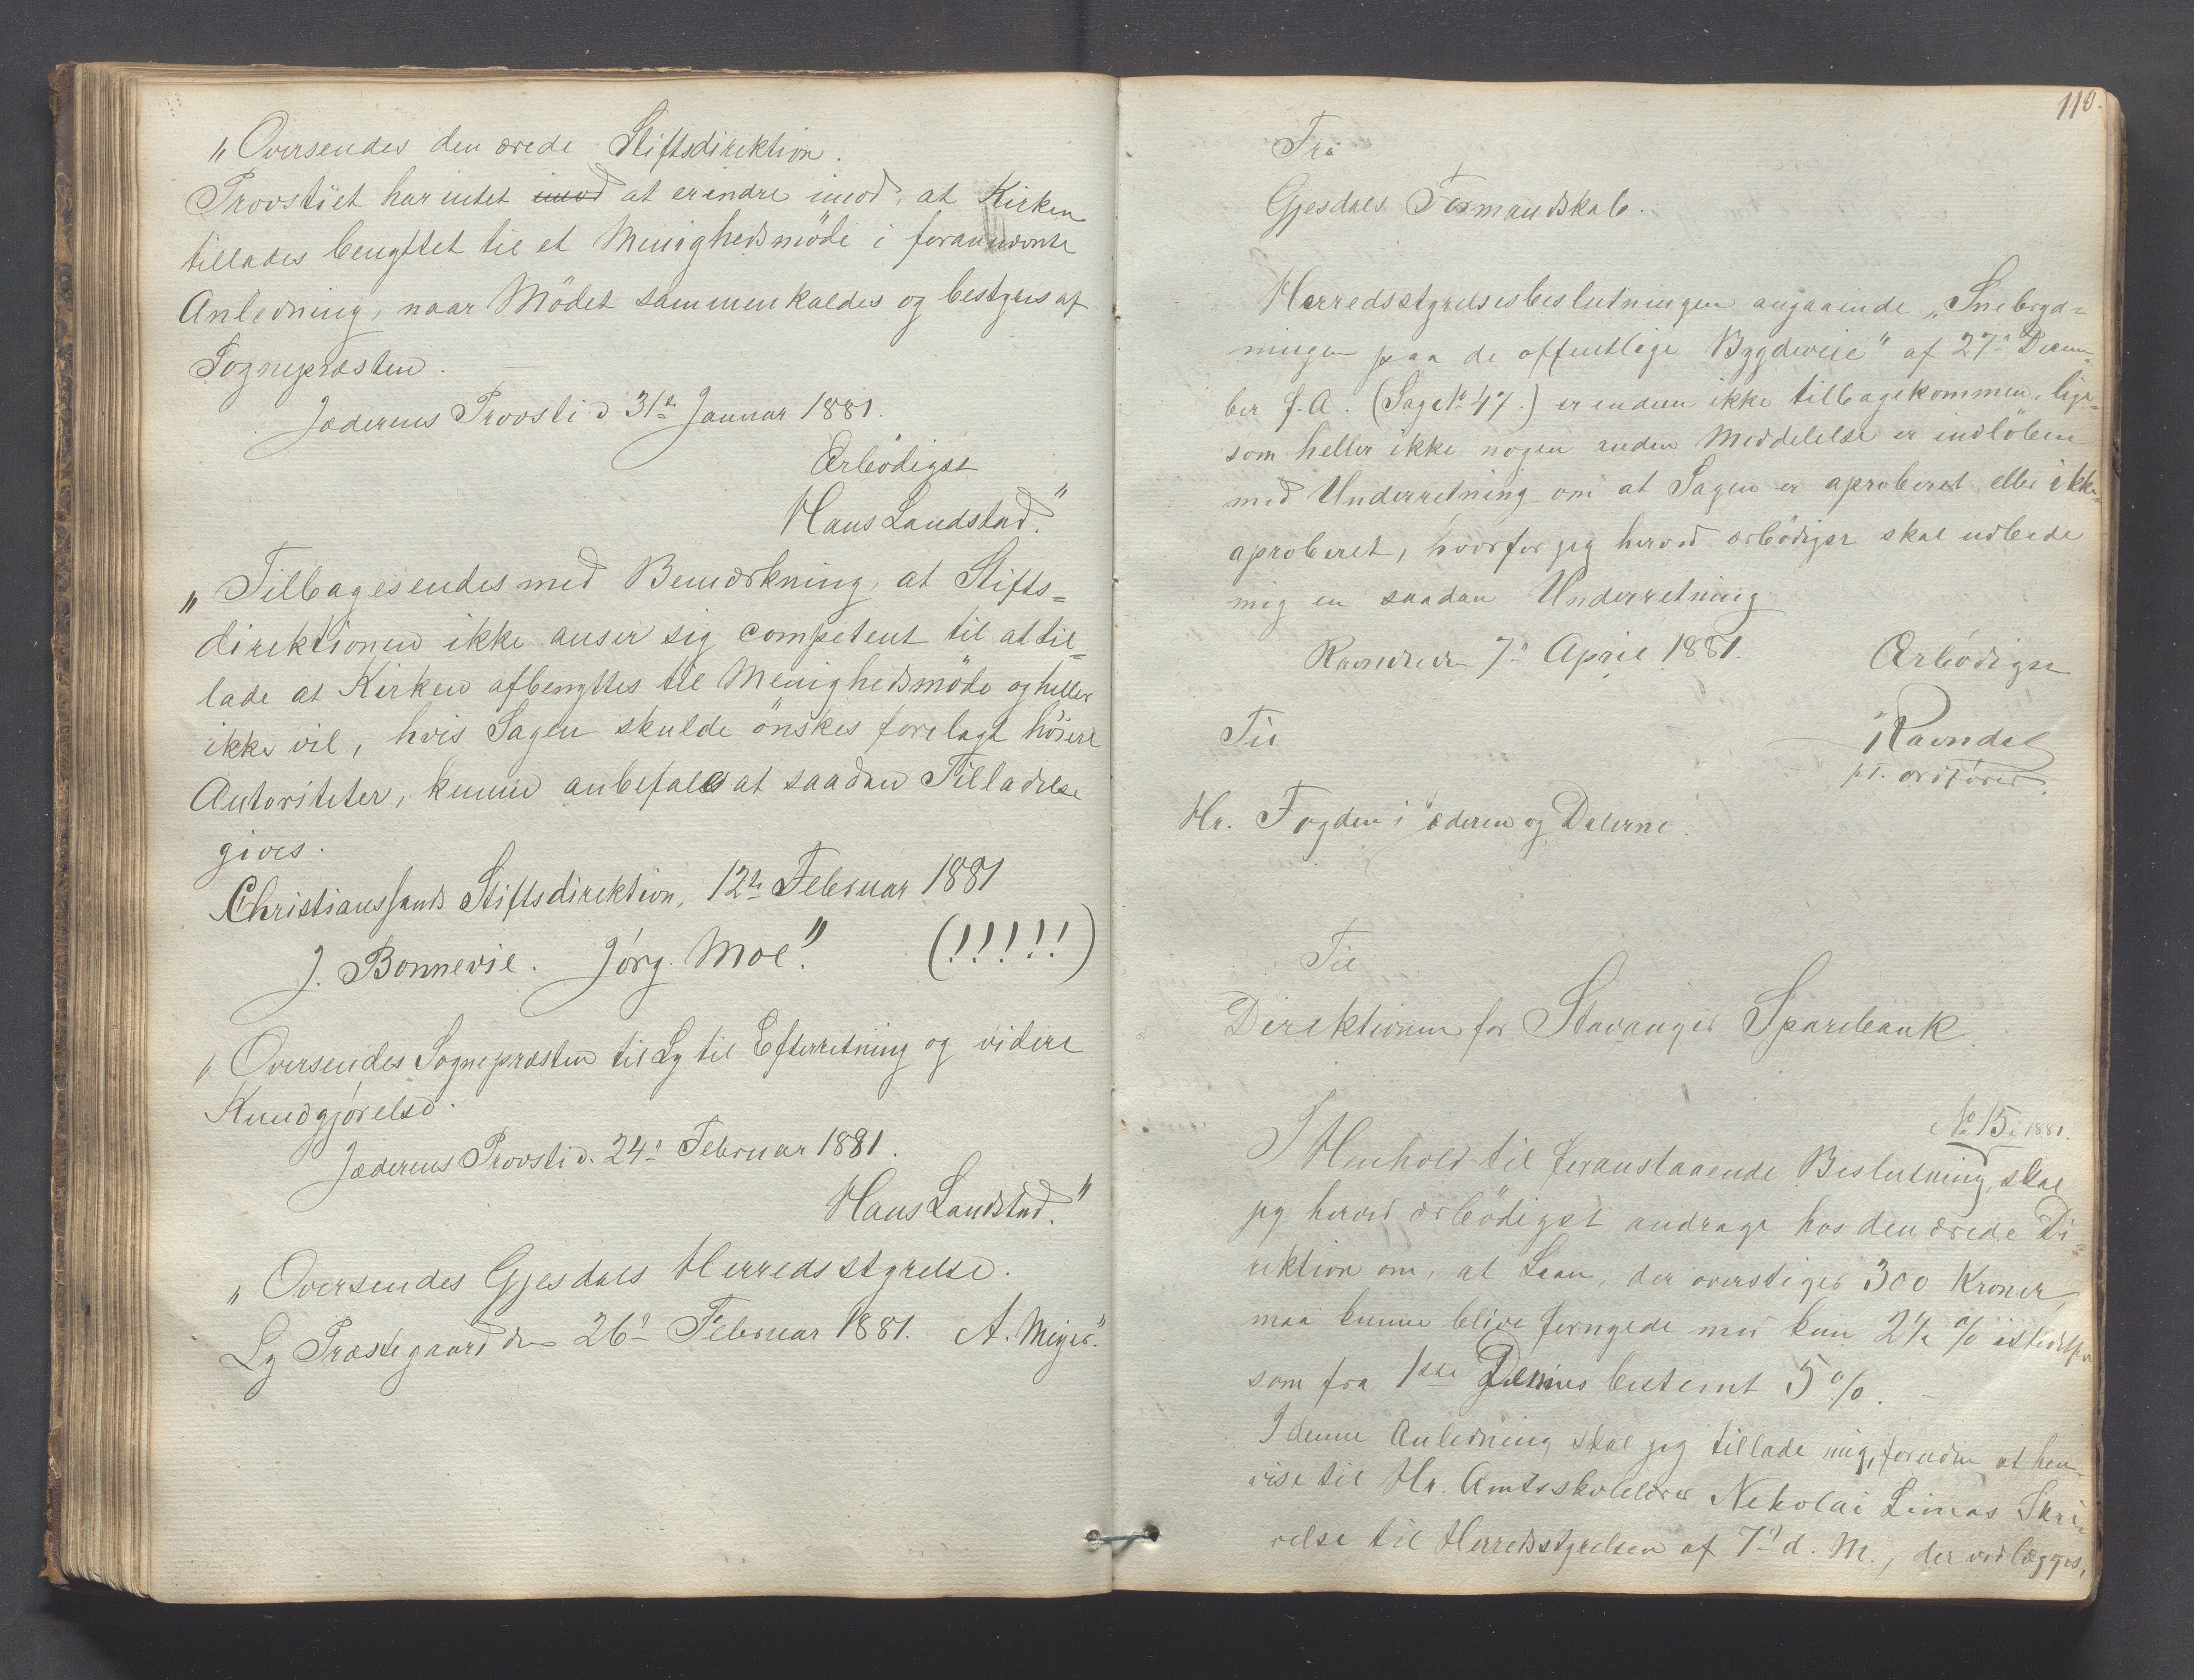 „Oversendes den ærede Stiftsdirektion.
Provstiet har intet imod at erindre imod, at Kirken
tillades benyttet til et Menighedsmöde i forannævnte
Anledning, naar Mödet sammenkaldes og bestyres af
Sognepræsten.
Jæderens Provsti d 31te Januar 1881.
Ærbödigst
Hans Landstad."
„Tilbagesendes med Bemærkning, at Stifts=
direktionen ikke anser sig competent til at til=
lade at Kirken afbenyttes til Menighedsmöde og heller
ikke vil, hvis Sagen skulde önskes forelagt höiere
Autoriteter, kunne anbefale at saadan Tilladelse
gives.
Christianssands Stiftsdirektion, 12te Februar 1881
J. Bonnevie. Jörg. Moe." (!!!!!)
„Oversendes Sognepræsten til Ly til Efterretning og videre
Kundgjörelse.
Jæderens Provsti d. 24de Februar 1881.
Hans Landstad."
„Oversendes Gjesdals Herredsstyrelse.
Ly Præstegaard den 26de Februar 1881. A. Meyer."
110.
Fra
Gjesdals Formandskab.
Herredsstyrelsesbeslutningen angaaende „Snebryd=
ningen paa de offentlige Bygdeveie" af 27de Decem=
ber f. A. (Sag No 47.) er endnu ikke tilbagekommen, lige=
som heller ikke nogen anden Meddelelse er indlöben
med Underretning om at Sagen er aproberet eller ikke=
aproberet, hvorfor jeg herved ærbödigst skal udbede
mig en saadan Underretning.
Ravndal den 7de April 1881. Ærbödigst
Til Ravndal
p.t. ordförer.
Hr. Fogden i Jæderen og Dalerne.
Til
Direktionen for Stavanger Sparebank.
No 15, 1881.
I Henhold til foranstaaende Beslutning, skal
jeg herved ærbödigst andrage hos den ærede Di=
rektion om, at Laan, der overstiger 300 Kroner,
maa kunne blive fornyede med kun 2½ % istedetfor
som fra 1ste bestemt 5 %. —
I denne Anledning skal jeg tillade mig, foruden at hen=
vise til Hr. Amtsskolelærer Nekolai Limas Skri=
velse til Herredsstyrelsen af 7de d. M., der vedlægges,